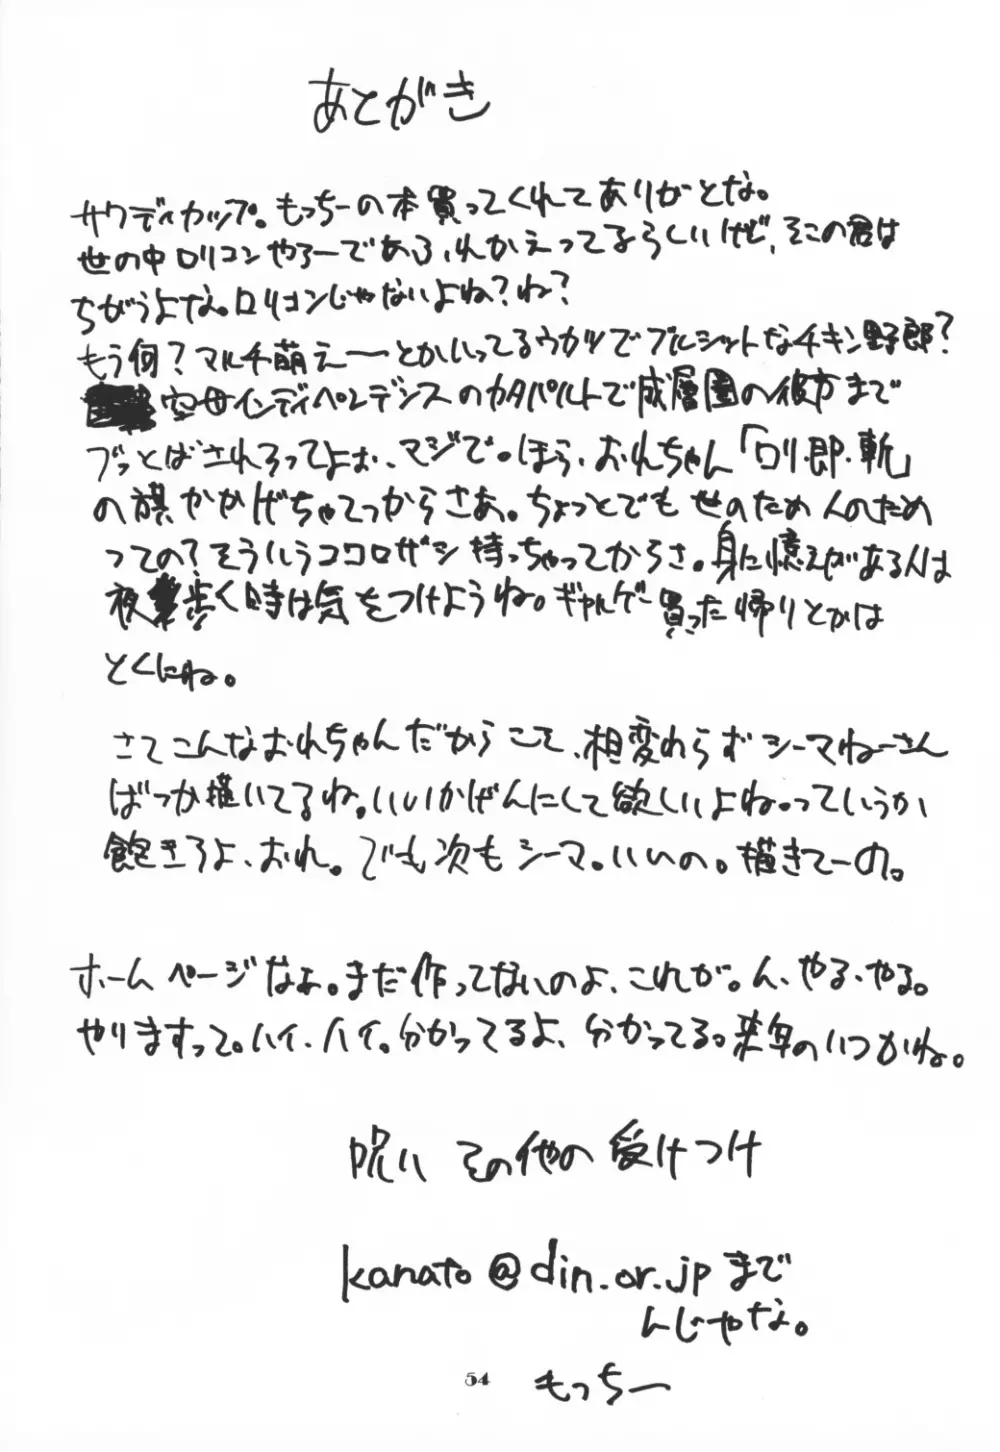 あとがき
サウディカップ。もっちーの本買ってくれてありがとな。
世の中ロリコンやろーであふれかえってるらしいけど、そこの君は
ちがうよな。ロリコンじゃないよね?ね?
もう何?マルチ萌えーーとかいってるウカツでブルシットなチキン野郎?
空母インディペンデンスのカタパルトで成層圏の彼方まで
ブッとばされろってよぉ、マジで。ほら、おれちゃん「ロリ・即・斬」
の旗かかげちゃてっからさあ。ちょっとでも世のため人のため
っての?そういうココロザシ持っちゃってからさ。身に憶えがある人は
夜歩く時は気をつけようね。ギャルゲー買った帰りとかは
とくにね。
さてこんなおれちゃんだからこそ、相変わらずシーマねーさん
ばっか描いてるね。いいかげんにして欲しいよね。っていうか
飽きろよ、おれ。でも次もシーマ。いいの。描きてーの。
ホームページなぁ。まだ作ってないのよ、これが。ん、やる、やる。
やりますって。ハイ、ハイ。分かってるよ、分かってる。来年のいつかね。
呪い その他の受けつけ
kanato@din.or.jpまで
んじゃな。
54 もっちー